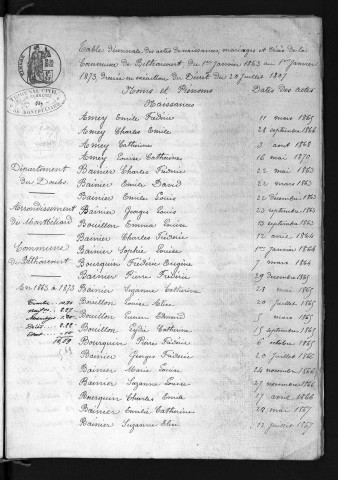 Table décennale des actes de naissances, mariages et décès de la
Commune de Bethoncourt, du 1er Janvier 1863 au 1er Janvier
1873, dressée en exécution du Décret du 20 Juillet 1807
Noms et Prénoms Dates des actes
Naissances
Amey Emile Frédéric 11 mars 1865
Amey Charles Emile 28 septembre 1866
Amey Catherine 3 août 1868
Amey Louise Catherine 16 mai 1870
Département
du Doubs
Bainier Charles Frédéric 22 mai 1863
Bainier Emile David 22 mars 1863
Bainier Emile Louis 22 Décembre 1863
Arrondissement
de Montbéliard
Bainier Georges Louis 23 septembre 1863
Bouillon Emma Louise 13 septembre 1863
Bainier Charles Frédéric 12 avril 1864
Commune
de Bethoncourt
Bainier Sophie Louise 1er janvier 1864
Bourquin Frédéric Eugène 7 mars 1864
Bainier Pierre Frédéric 29 Décembre 1865
En 1863 à 1873
Bainier Suzanne Catherine 28 mai 1865
Bouillon Louise Elise 20 Juillet 1865
Bouillon Lucien Edmond 5 mars 1865
Bouillon Lydie Catherine 15 septembre 1865
Bourquin Pierre Frédéric 6 octobre 1865
Bainier Georges Frédéric 20 Juillet 1865
Bainier Marie Louise 24 novembre 1866
Bainier Suzanne Louise 27 novembre 1866
Bourquin Charles Emile 17 avril 1866
Bainier Emilie Catherine 29 mai 1867
Bainier Suzanne Elise 12 Juillet 1867